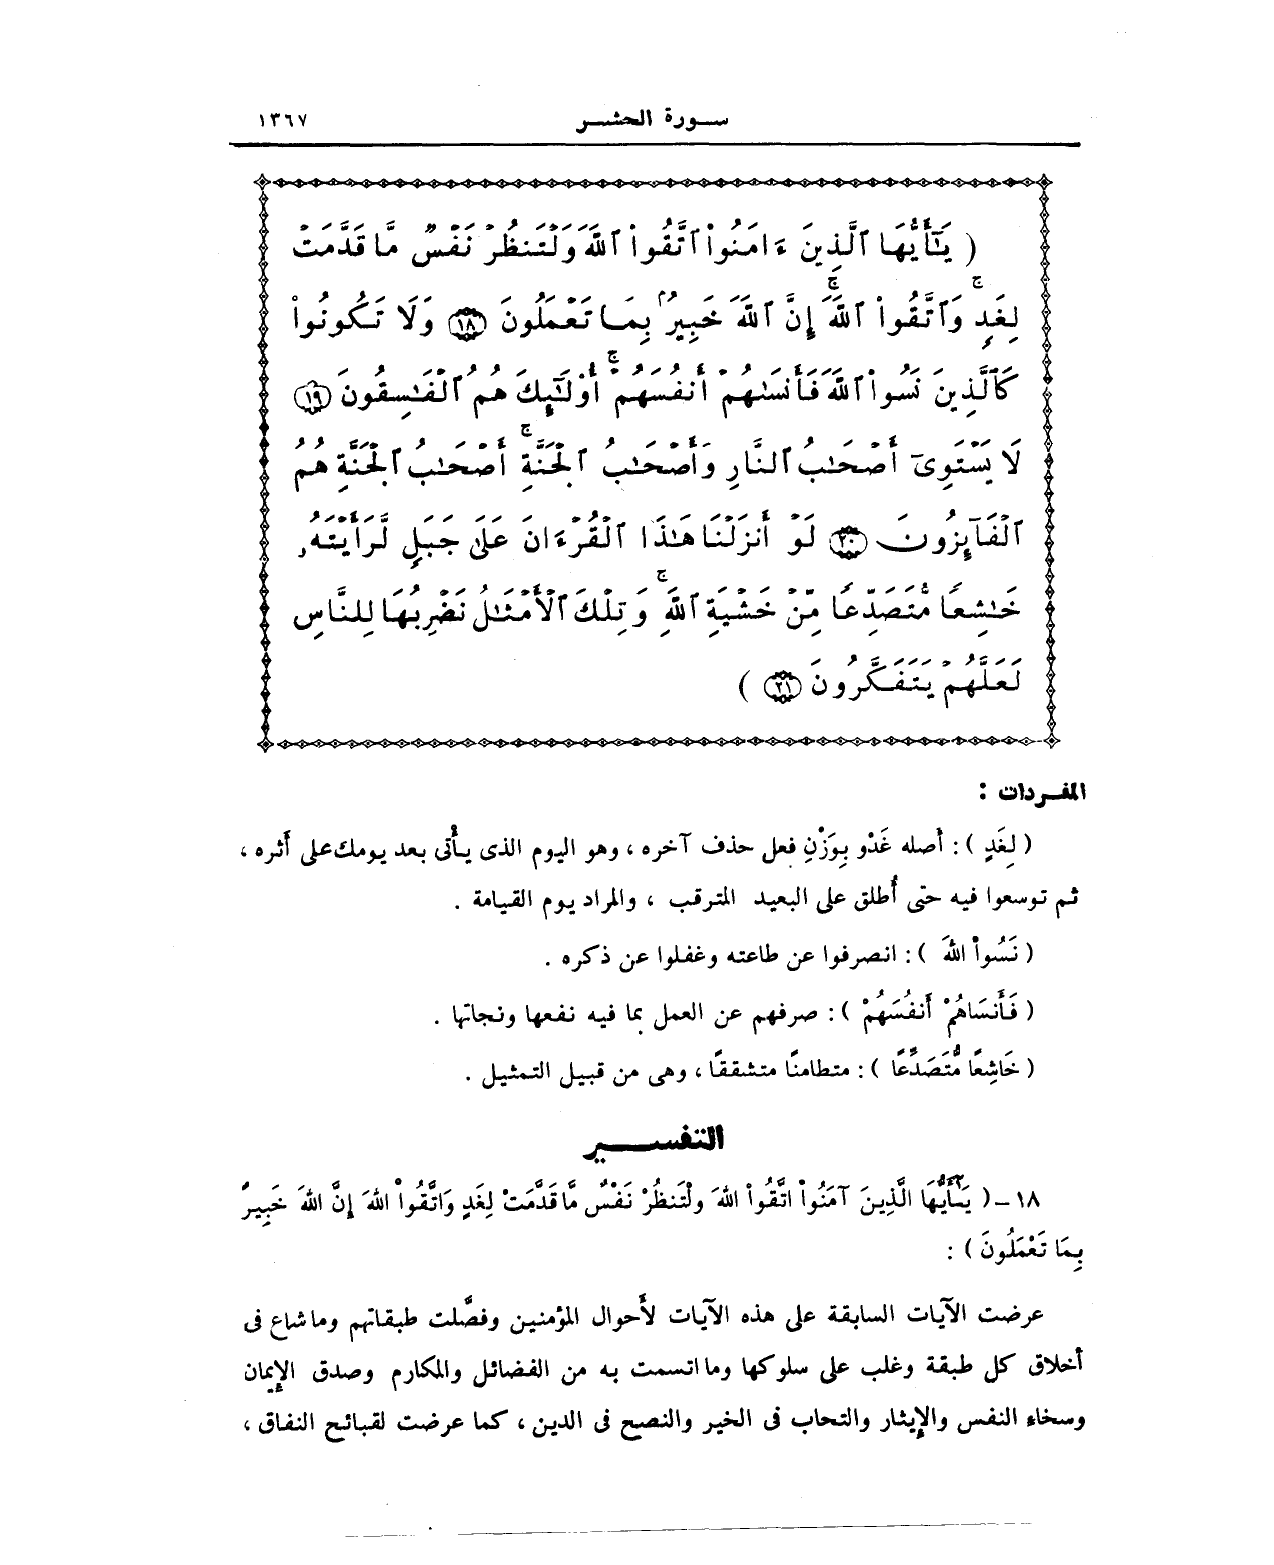 سورة الحشر ١٣٦٧
( يَٰٓأَيُّهَا ٱلَّذِينَ ءَامَنُوا۟ ٱتَّقُوا۟ ٱللَّهَ وَلْتَنظُرْ نَفْسٌ مَّا قَدَّمَتْ
لِغَدٍۢ ۚ وَٱتَّقُوا۟ ٱللَّهَ ۚ إِنَّ ٱللَّهَ خَبِيرٌۢ بِمَا تَعْمَلُونَ ١٨ وَلَا تَكُونُوا۟
كَٱلَّذِينَ نَسُوا۟ ٱللَّهَ فَأَنسَىٰهُمْ أَنفُسَهُمْ ۚ أُو۟لَٰٓئِكَ هُمُ ٱلْفَٰسِقُونَ ١٩
لَا يَسْتَوِىٓ أَصْحَٰبُ ٱلنَّارِ وَأَصْحَٰبُ ٱلْجَنَّةِ ۚ أَصْحَٰبُ ٱلْجَنَّةِ هُمُ
ٱلْفَآئِزُونَ ٢٠ لَوْ أَنزَلْنَا هَٰذَا ٱلْقُرْءَانَ عَلَىٰ جَبَلٍ لَّرَأَيْتَهُۥ
خَٰشِعًا مُّتَصَدِّعًا مِّنْ خَشْيَةِ ٱللَّهِ ۚ وَتِلْكَ ٱلْأَمْثَٰلُ نَضْرِبُهَا لِلنَّاسِ
لَعَلَّهُمْ يَتَفَكَّرُونَ ٢١ )
المفردات :
( لِغَدٍ ) : أصله غَدْو بِوَزْنِ فعل حذف آخره ، وهو اليوم الذى يأْتى بعد يومك على أَثره ،
ثم توسعوا فيه حتى أُطلق على البعيد المترقب ، والمراد يوم القيامة .
( نَسُواْ اللهَ ) : انصرفوا عن طاعته وغفلوا عن ذكره .
( فَأَنسَاهُمْ أَنفُسَهُمْ ) : صرفهم عن العمل بما فيه نفعها ونجاتها .
( خَاشِعًا مُّتَصَدِّعًا ) : متطامنًا متشققًا ، وهى من قبيل التمثيل .
التفسير
١٨ – ( يَٰٓأَيُّهَا الَّذِينَ آمَنُواْ اتَّقُواْ اللهَ ولْتَنظُرْ نَفْسٌ مَّا قَدَّمَتْ لِغَدٍ وَاتَّقُواْ اللهَ إِنَّ اللهَ خَبِيرٌ
بِمَا تَعْمَلُونَ ) :
عرضت الآيات السابقة على هذه الآيات لأَحوال المؤمنين وفصَّلت طبقاتهم وما شاع فى
أخلاق كل طبقة وغلب على سلوكها وما اتسمت به من الفضائل والمكارم وصدق الإِيمان
وسخاء النفس والإِيثار والتحاب فى الخير والنصح فى الدين ، كما عرضت لقبائح النفاق ،